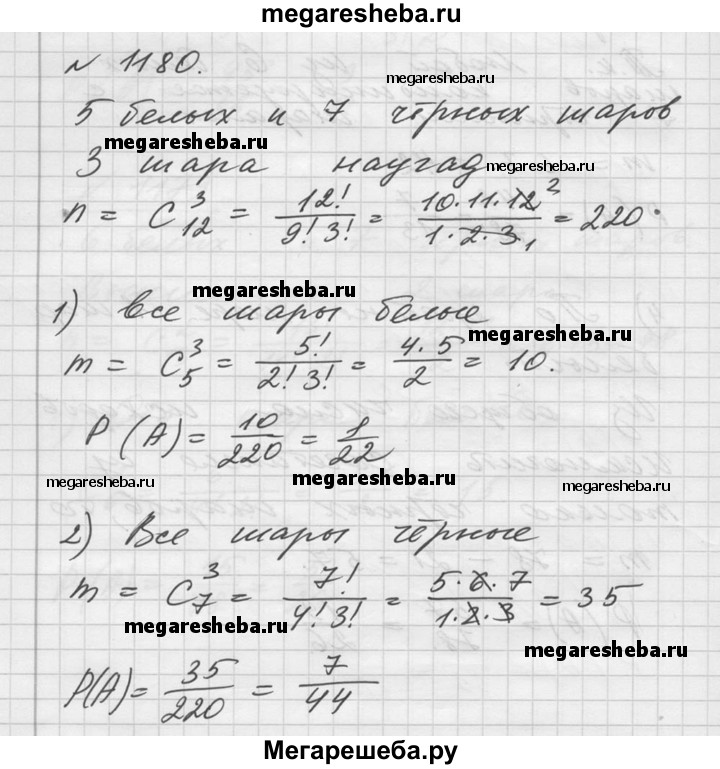 megaresheba.ru
№ 1180.
megaresheba.ru
5 белых и 7 чёрных шаров
megaresheba.ru
3 шара наугад
megaresheba.ru
n = C_{12}^{3} = 12!/(9! 3!) = (10·11·12^{2})/(1·2·3_{1}) = 220.
megaresheba.ru
1) все шары белые
megaresheba.ru
m = C_{5}^{3} = 5!/(2! 3!) = (4·5)/2 = 10.
P(A) = 10/220 = 1/22
megaresheba.ru
megaresheba.ru
megaresheba.ru
2) Все шары чёрные
m = C_{7}^{3} = 7!/(4! 3!) = (5·6·7)/(1·2·3) = 35
megaresheba.ru
megaresheba.ru
P(A) = 35/220 = 7/44
Мегарешеба.ру